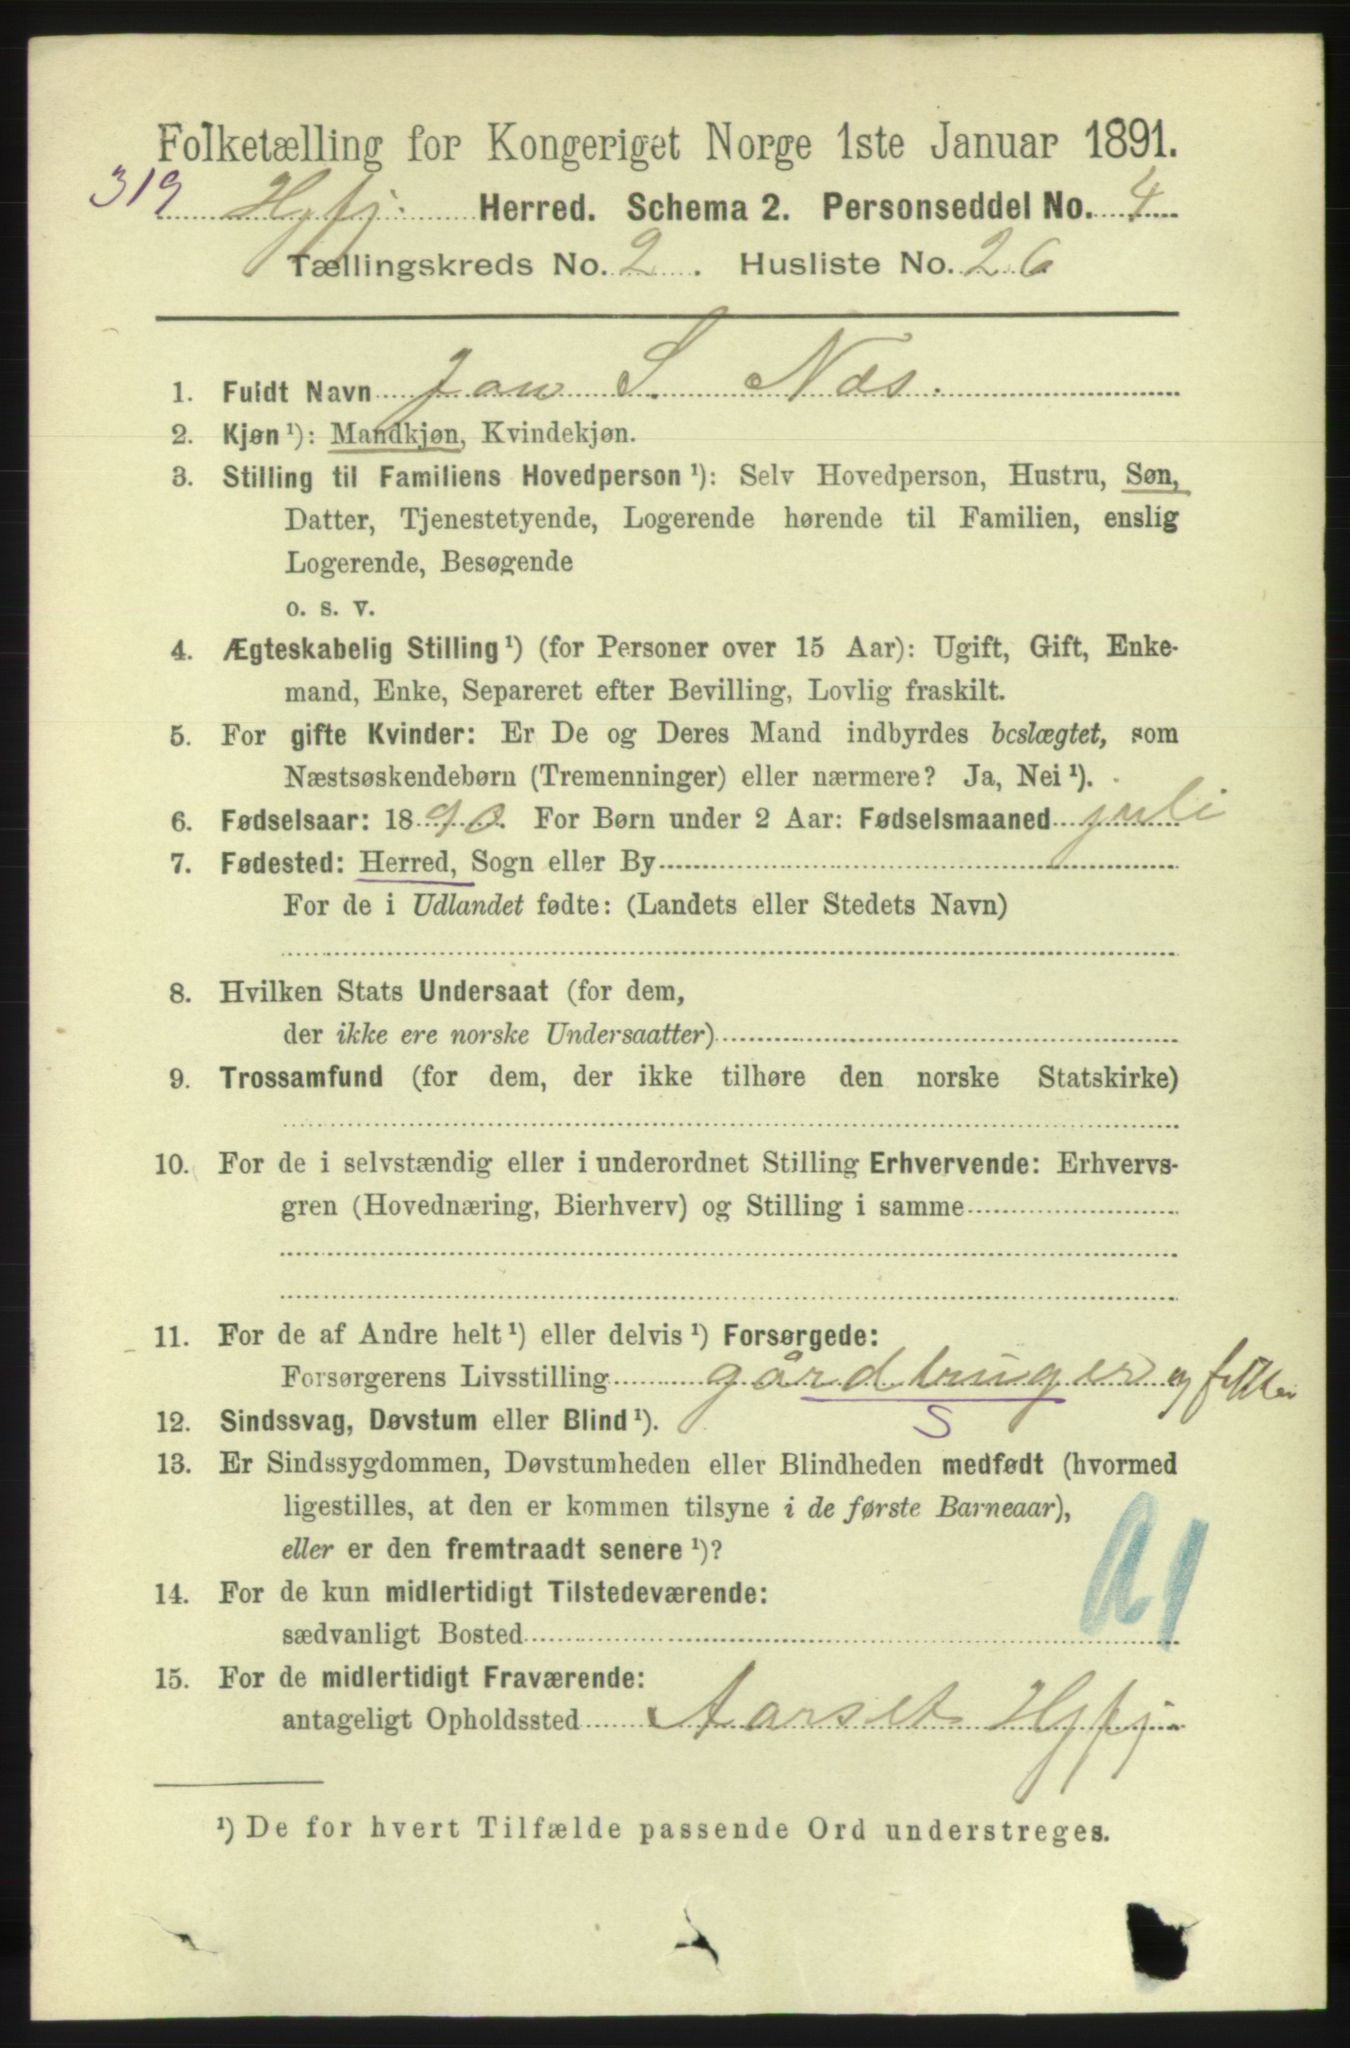 Folketælling for Kongeriget Norge 1ste Januar 1891.
319 Hjfj. Herred. Schema 2. Personseddel No. 4
Tællingskreds No. 2. Husliste No. 26
1. Fuldt Navn Jon S. Næs.
2. Kjøn ¹): Mandkjøn, Kvindekjøn.
3. Stilling til Familiens Hovedperson ¹): Selv Hovedperson, Hustru, Søn,
Datter, Tjenestetyende, Logerende hørende til Familien, enslig
Logerende, Besøgende
o. s. v.
4. Ægteskabelig Stilling ¹) (for Personer over 15 Aar): Ugift, Gift, Enke-
mand, Enke, Separeret efter Bevilling, Lovlig fraskilt.
5. For gifte Kvinder: Er De og Deres Mand indbyrdes beslægtet, som
Næstsøskendebørn (Tremenninger) eller nærmere? Ja, Nei ¹).
6. Fødselsaar: 1890. For Børn under 2 Aar: Fødselsmaaned juli
7. Fødested: Herred, Sogn eller By
For de i Udlandet fødte: (Landets eller Stedets Navn)
8. Hvilken Stats Undersaat (for dem,
der ikke ere norske Undersaatter)
9. Trossamfund (for dem, der ikke tilhøre den norske Statskirke)
10. For de i selvstændig eller i underordnet Stilling Erhvervende: Erhvervs-
gren (Hovednæring, Bierhverv) og Stilling i samme
11. For de af Andre helt ¹) eller delvis ¹) Forsørgede:
Forsørgerens Livsstilling gårdbruger og
S
12. Sindssvag, Døvstum eller Blind ¹).
13. Er Sindssygdommen, Døvstumheden eller Blindheden medfødt (hvormed
ligestilles, at den er kommen tilsyne i de første Barneaar),
eller er den fremtraadt senere ¹)?
14. For de kun midlertidigt Tilstedeværende:
sædvanligt Bosted
15. For de midlertidigt Fraværende:
antageligt Opholdssted Aarset Hjfj.
¹) De for hvert Tilfælde passende Ord understreges.